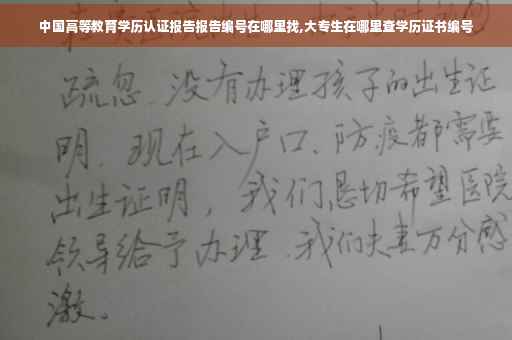 中国高等教育学历认证报告报告编号在哪里找,大专生在哪里查学历证书编号
疏忽、没有办理孩子的出生证
明、现在入户口、防疫都需要
出生证明，我们恳切希望医院
领导给予办理、我们夫妻万分感
激。